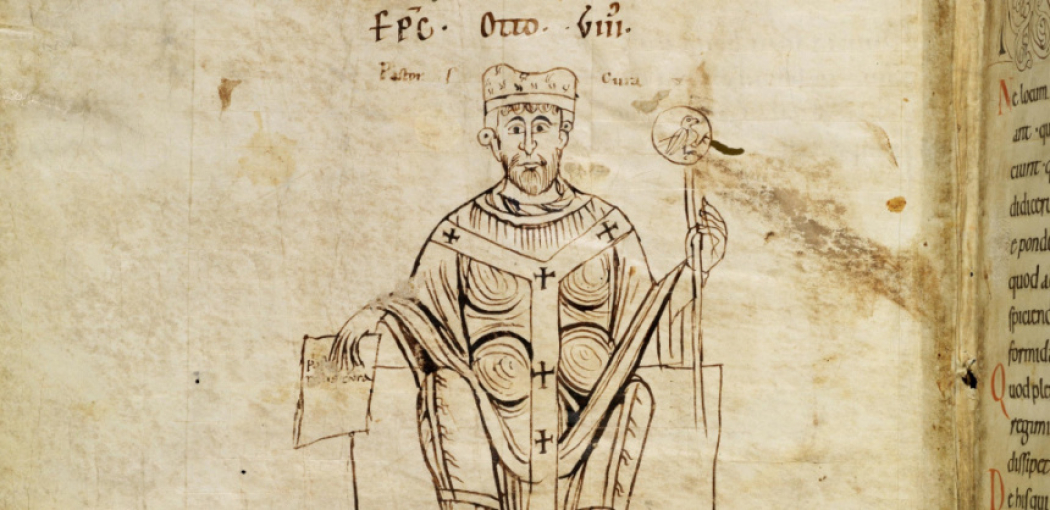 EP̄C · Otto · VIII ·
Pastor
cura
Ne locum
unt · qu
ciunt · q
didicer
e pond
quod a
spicien
formid
Quod ple
regimi
dissipet
De his qui